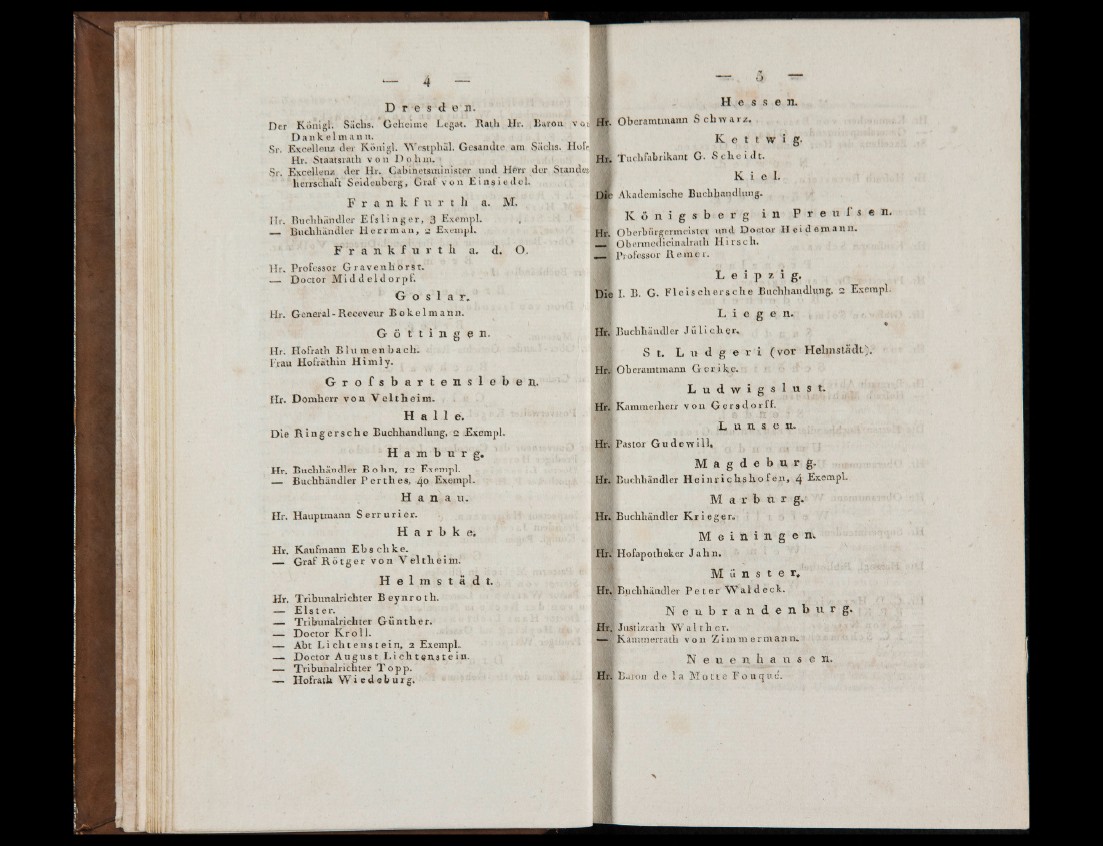 — 4 —
Dresden.
Der Königl. Sächs. Geheime Legat. Rath Hr. Baron von
Dankelmann.
Sr. Excellenz der Königl. Westphäl. Gesandte am Sächs. Hofe
Hr. Staatsrath von Dohm.
Sr. Excellenz der Hr. Cabinetsminister und Herr der Standes
herrschaft Seidenberg, Graf von Einsiedel.
Frankfurth a. M.
Hr. Buchhändler Efslinger, 3 Exempl.
— Buchhändler Herrman, 2 Exempl.
Frankfurth a. d. O.
Hr. Professor Gravenhorst.
— Doctor Middeldorpf.
Goslar.
Hr. General-Receveur Bokelmann.
Göttingen.
Hr. Hofrath Blumenbach.
Frau Hofräthin Himly.
Grofsbartensleben.
Hr. Domherr von Veltheim.
Halle.
Die Ringersche Buchhandlung, 2 Exempl.
Hamburg.
Hr. Buchhändler Bohn, 12 Exempl.
— Buchhändler Perthes, 40 Exempl.
Hanau.
Hr. Hauptmann Serrurier.
Harbke.
Hr. Kaufmann Ebschke.
— Graf Rötger von Veltheim.
Helmstädt.
Hr. Tribunalrichter Beynroth.
— Elster.
— Tribunalrichter Günther.
— Doctor Kroll.
— Abt Lichtenstein, 2 Exempl.
— Doctor August Lichtenstein.
— Tribunalrichter Topp.
— Hofrath Wiedeburg.
— 5 —
Hessen.
Hr. Oberamtmann Schwarz.
Kettwig.
Hr. Tuchfabrikant G. Scheidt.
Kiel.
Die Akademische Buchhandlung.
Königsberg in Preufsen.
Hr. Oberbürgermeister und Doctor Heidemann.
— Obermedicinalrath Hirsch.
— Professor Remer.
Leipzig.
Die I. B. G. Fleischersche Buchhandlung, 2 Exempl.
Liegen.
Hr. Buchhändler Jülicher.
St. Ludgeri (vor Helmstädt.).
Hr. Oberamtmann Gerike.
Ludwigslust.
Hr. Kammerherr von Gersdorff.
Lunsen.
Hr. Pastor Gudewill.
Magdeburg.
Hr. Buchhändler Heinrichshofen, 4 Exempl.
Marburg.
Hr. Buchhändler Krieger.
Meiningen.
Hr. Hofapotheker Jahn.
Münster.
Hr. Buchhändler Peter Waldeck.
Neubrandenburg.
Hr. Justizrath Walther.
— Kammerrath von Zimmermann.
Neuenhausen.
Hr. Baron de la Motte Fouqué.